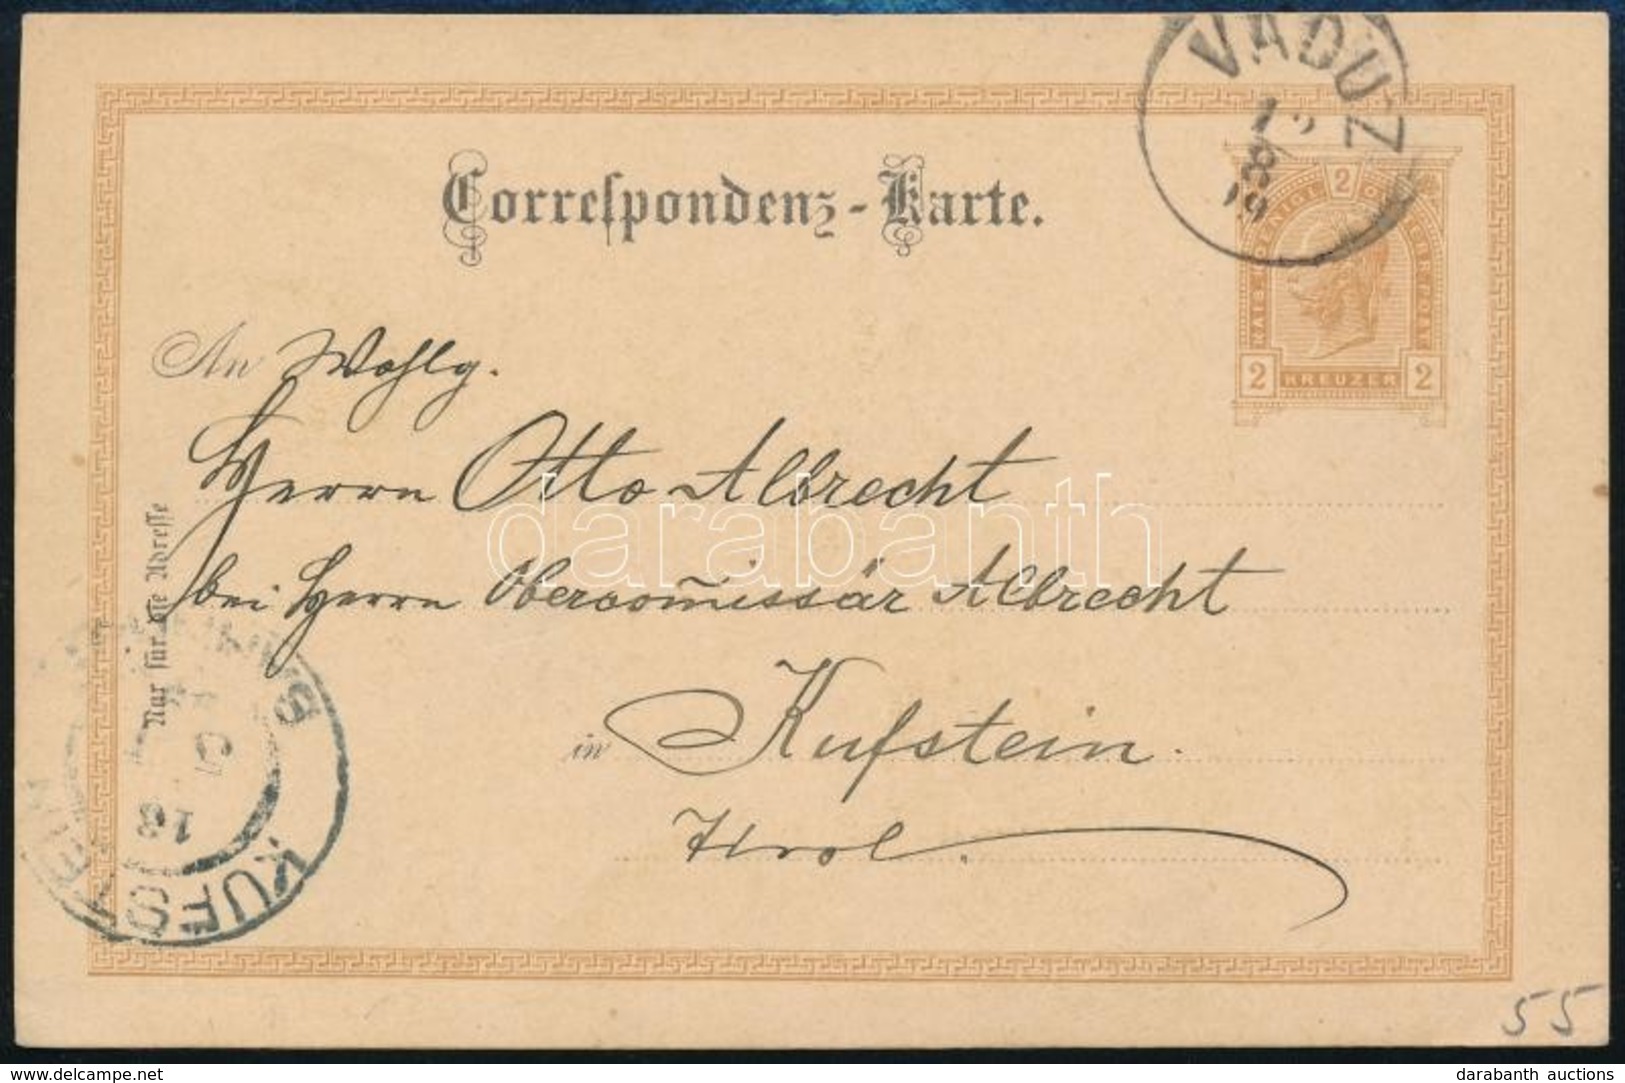 VADUZ
Correspondenz-Karte.
2
KREUZER
2 2
An Wohlg.
Herrn Otto Albrecht
bei Herrn Obercom̄issär Albrecht
in Kufstein.
Tirol.
Nur für die Adresse
KUFSTEIN
darabanth
55
delcampe.net
darabanth auctions